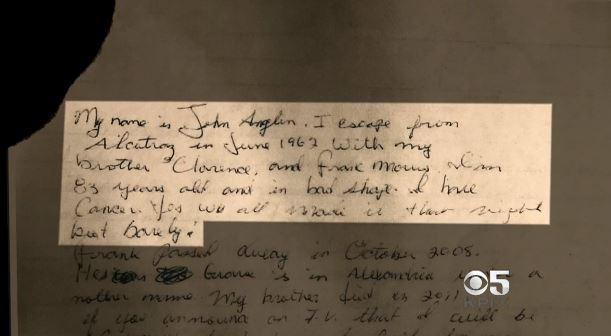 My name is John Anglin. I escape from
Alcatraz in June 1962 With my
brother Clarence, and Frank Morris. I'm
83 years old and in bad shape. I have
Cancer. Yes we all made it that night
but barely!
Frank passed away in October 2008.
His Grave is in Alexandria a
nother name. My brother died in 2011.
If you announce on T.V. that I will be
5